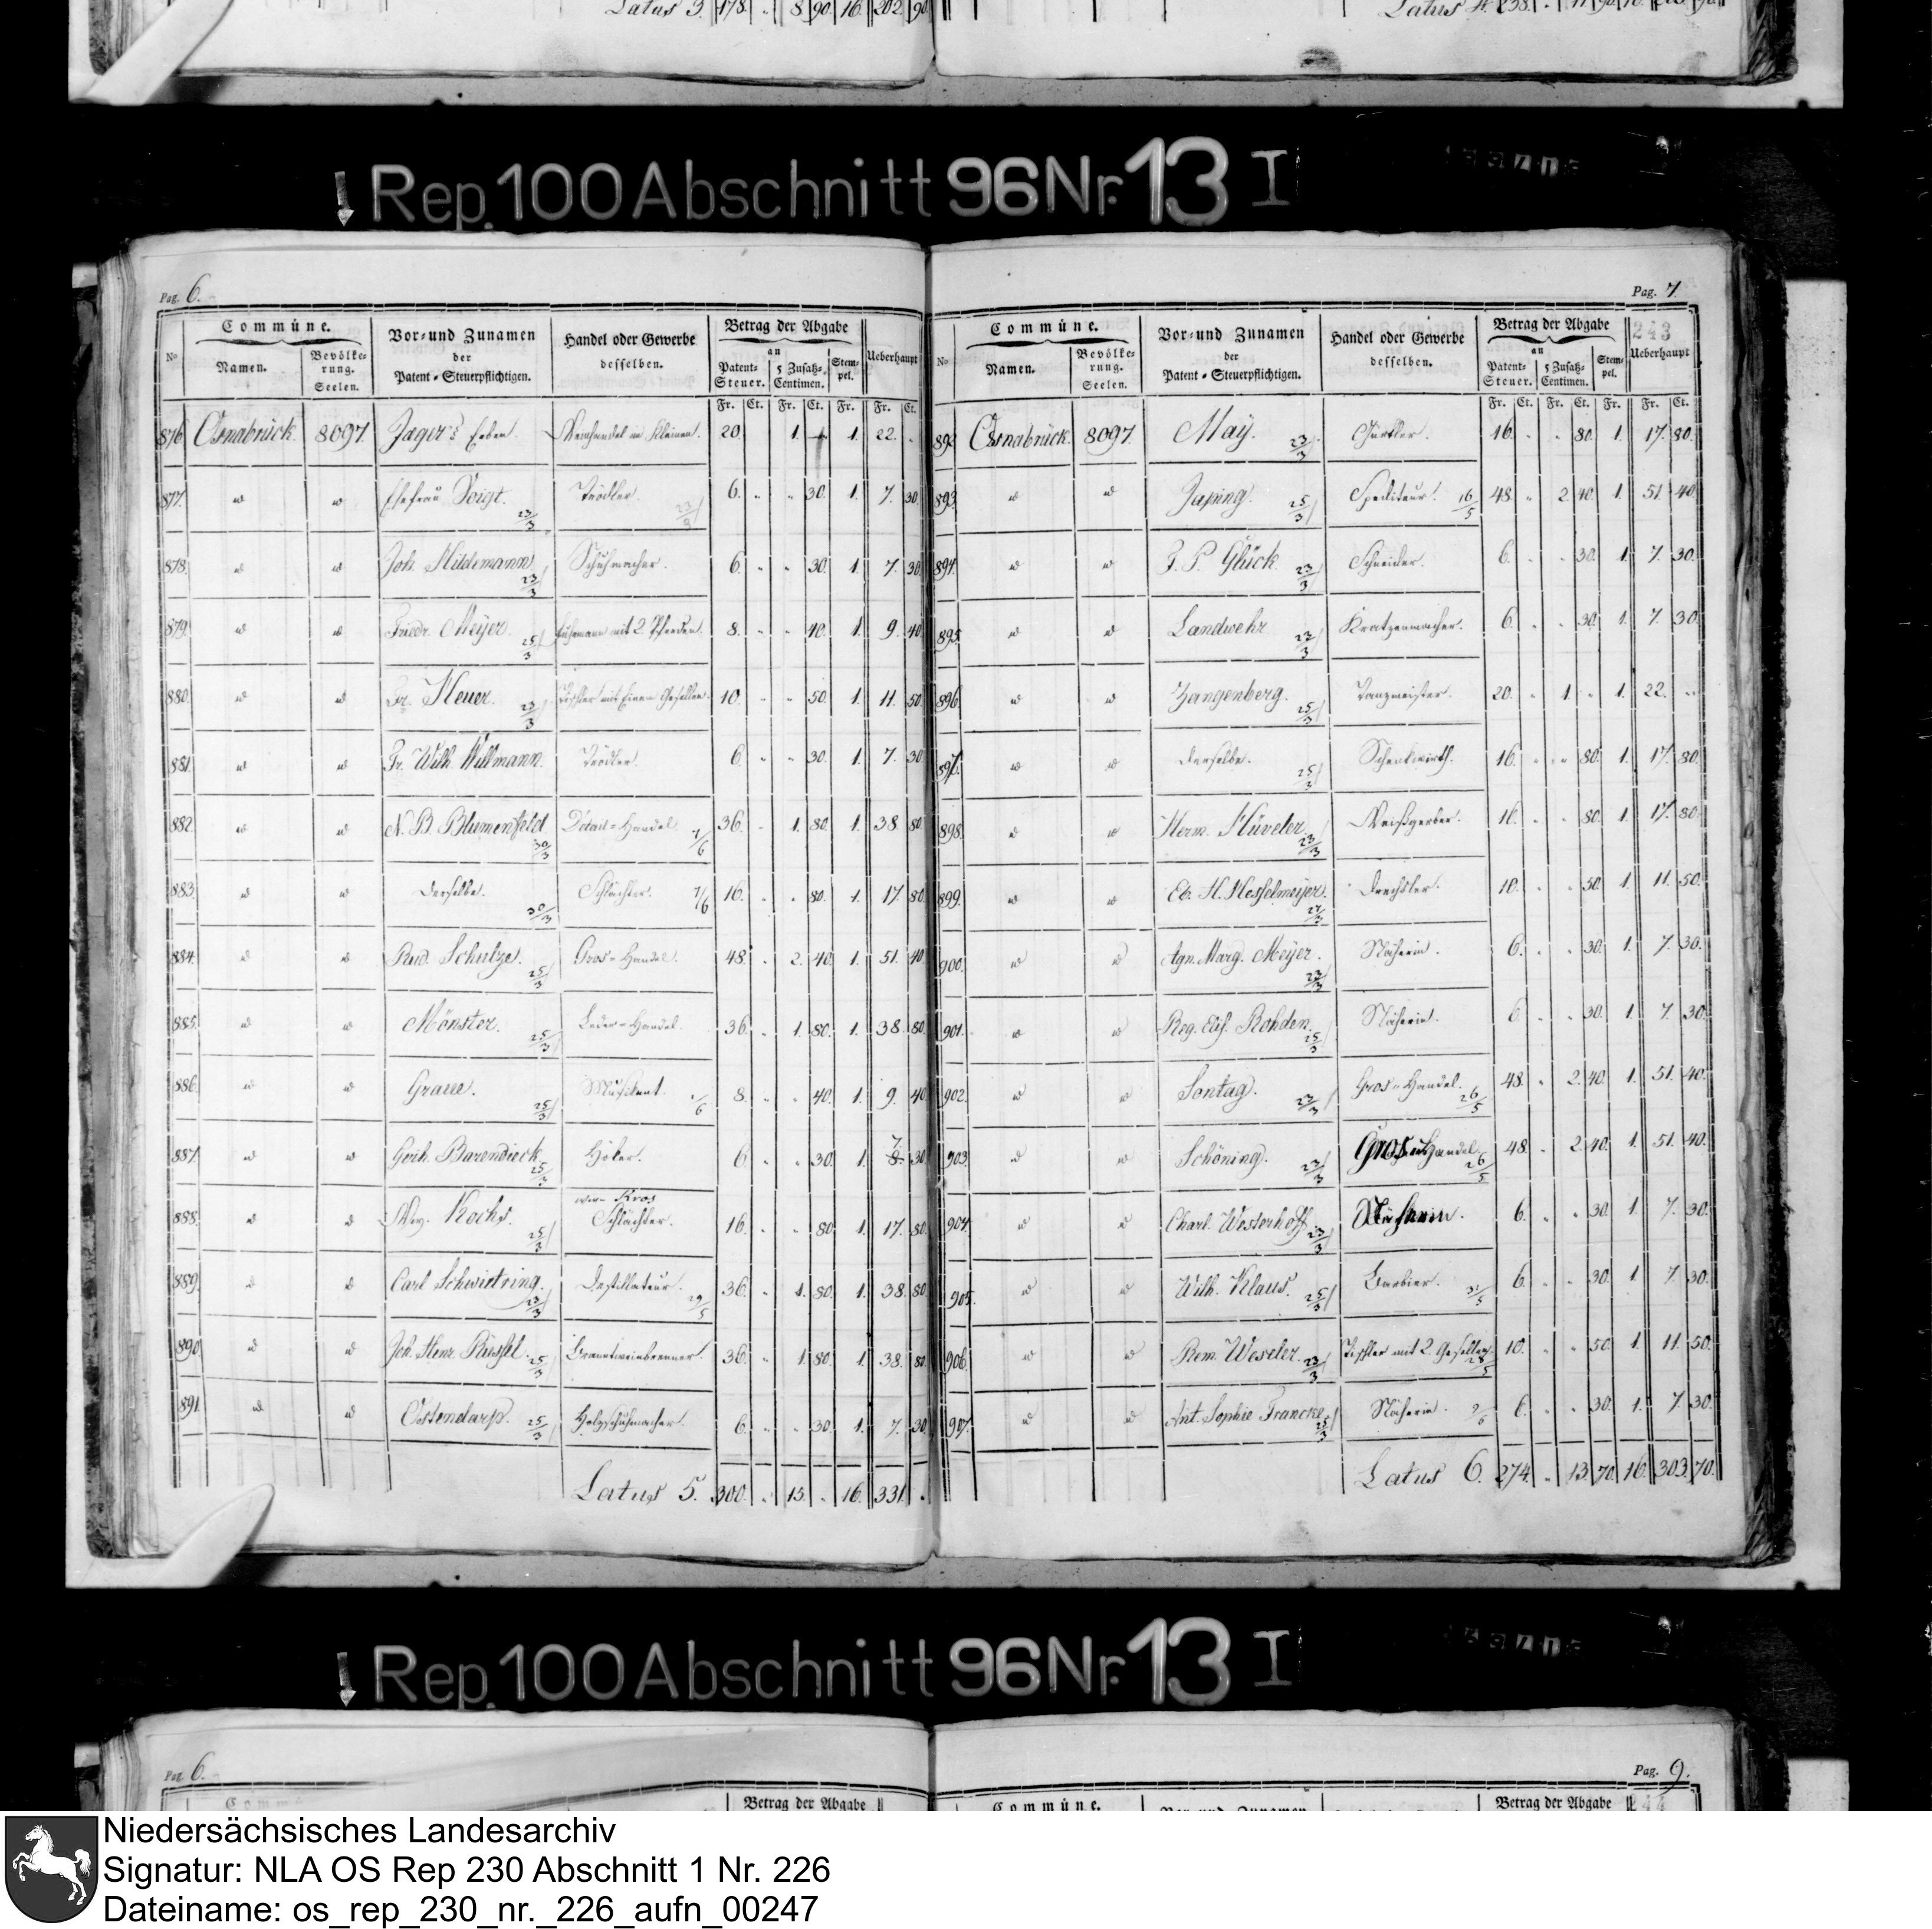 Latus 3. 178. " 8 90. 16. 202. 90.
Latus 4. 238.
Rep. 100 Abschnitt 96 Nr. 13 I
Pag. 6.
Commüne.
Vor- und Zunamen
Handel oder Gewerbe
Betrag der Abgabe
No
Namen.
Bevölke-
rung.
Seelen.
der
Patent-Steuerpflichtigen.
desselben.
an
Patent-
Steuer.
5 Zusatz-
Centimen.
Stem-
pel.
Ueberhaupt
Fr. Ct. Fr. Ct. Fr. Fr. Ct.
876. Osnabrück. 8097. Jäger's Erben. Weinhandel im Kleinen. 20. 1. 1. 22. "
877. " " Ehefrau Voigt. 23/3 Trödler. 6. " " 30. 1. 7. 30.
878. " " Joh. Hildemann 23/3 Schuhmacher. 6. " " 30. 1. 7. 30.
879. " " Friedr. Meijer. 25/3 Fuhrmann mit 2 Pferden. 8. " " 40. 1. 9. 40.
880. " " Fr. Heuer. 23/3 Tischler mit Einem Gesellen. 10. " " 50. 1. 11. 50.
881. " " Fr. Wilh. Willmann. Trödler. 6. " " 30. 1. 7. 30.
882. " " N. B. Blumenfeld 30/3 Detail-Handel. 1/6 36. " 1. 80. 1. 38. 80.
883. " " Derselbe. 30/3 Schlächter. 1/6 16. " " 80. 1. 17. 80.
884. " " Schultze. 25/3 Gros-Handel. 48. " 2. 40. 1. 51. 40.
885. " " Mönster. 25/3 Leder-Handel. 36. " 1. 80. 1. 38. 80.
886. " " Graue. 25/3 Musikant. 8. " " 40. 1. 9. 40.
887. " " Gerh. Barendieck 25/3 Höker. 6. " " 30. 1. 7. 30.
888. " " Wwe. Kochs. 25/3 Schlächter. 16. " " 80. 1. 17. 80.
889. " " Carl Schwietring. 23/3 Destillateur. 29/5 36. " 1. 80. 1. 38. 80.
890. " " Joh. Henr. Küssel. 25/3 Branntweinbrenner. 36. " 1. 80. 1. 38. 80.
891. " " Ostendarp. 25/3 Holzschuhmacher. 6. " " 30. 1. 7. 30.
Latus 5. 300. " 15. " 16. 331. "
Pag. 7
243
Commüne.
Vor- und Zunamen
Handel oder Gewerbe
Betrag der Abgabe
No.
Namen.
Bevölke-
rung.
Seelen.
der
Patent-Steuerpflichtigen.
desselben.
an
Patent-
Steuer.
5 Zusatz-
Centimen.
Stem-
pel.
Ueberhaupt
Fr. Ct. Fr. Ct. Fr. Fr. Ct.
892. Osnabrück. 8097. Maÿ. 23/3 Gürtler. 16. " " 80. 1. 17. 80.
893. " " Japing. 25/3 Spediteur. 16/5 48. " 2. 40. 1. 51. 40.
894. " " J. P. Glück. 23/3 Schneider. 6. " " 30. 1. 7. 30.
895. " " Landwehr 23/3 Kratzenmacher. 6. " " 30. 1. 7. 30.
896. " " Zangenberg. 25/3 Tanzmeister. 20. " 1. " 1. 22. "
897. " " Derselbe. 25/3 Schenkwirth. 16. " " 80. 1. 17. 80.
898. " " Herm. Hüveler 23/3 Weißgerber. 16. " " 80. 1. 17. 80.
899. " " Eb. H. Hesselmeijer. 27/3 Drechsler. 10. " " 50. 1. 11. 50.
900. " " Agn. Marg. Meijer. 23/3 Näherin. 6. " " 30. 1. 7. 30.
901. " " Reg. Elis. Rohden. 25/3 Näherin. 6 " " 30. 1. 7. 30.
902. " " Sontag. 23/3 Gros-Handel. 26/5 48. " 2. 40. 1. 51. 40.
903. " " Schöning. 23/3 Gros-Handel. 26/5 48. " 2. 40. 1. 51. 40.
904. " " Charl. Westerhoff 23/3 Näherin. 6. " " 30. 1. 7. 30.
905. " " Wilh. Klaus. 25/3 Barbier. 6. " " 30. 1. 7. 30.
906. " " Rem. Weseler. 23/3 Tischler mit 2. Gesellen. 10. " " 50. 1. 11. 50.
907. " " Ant. Sophie Francke 25/3 Näherin. 6. " " 30. 1. 7. 30.
Latus 6. 274. " 13. 70. 16. 303. 70.
Rep. 100 Abschnitt 96 Nr. 13 I
Pag. 6.
Betrag der Abgabe
Pag. 9.
Commüne.
Betrag der Abgabe
244
Niedersächsisches Landesarchiv
Signatur: NLA OS Rep 230 Abschnitt 1 Nr. 226
Dateiname: os_rep_230_nr._226_aufn_00247